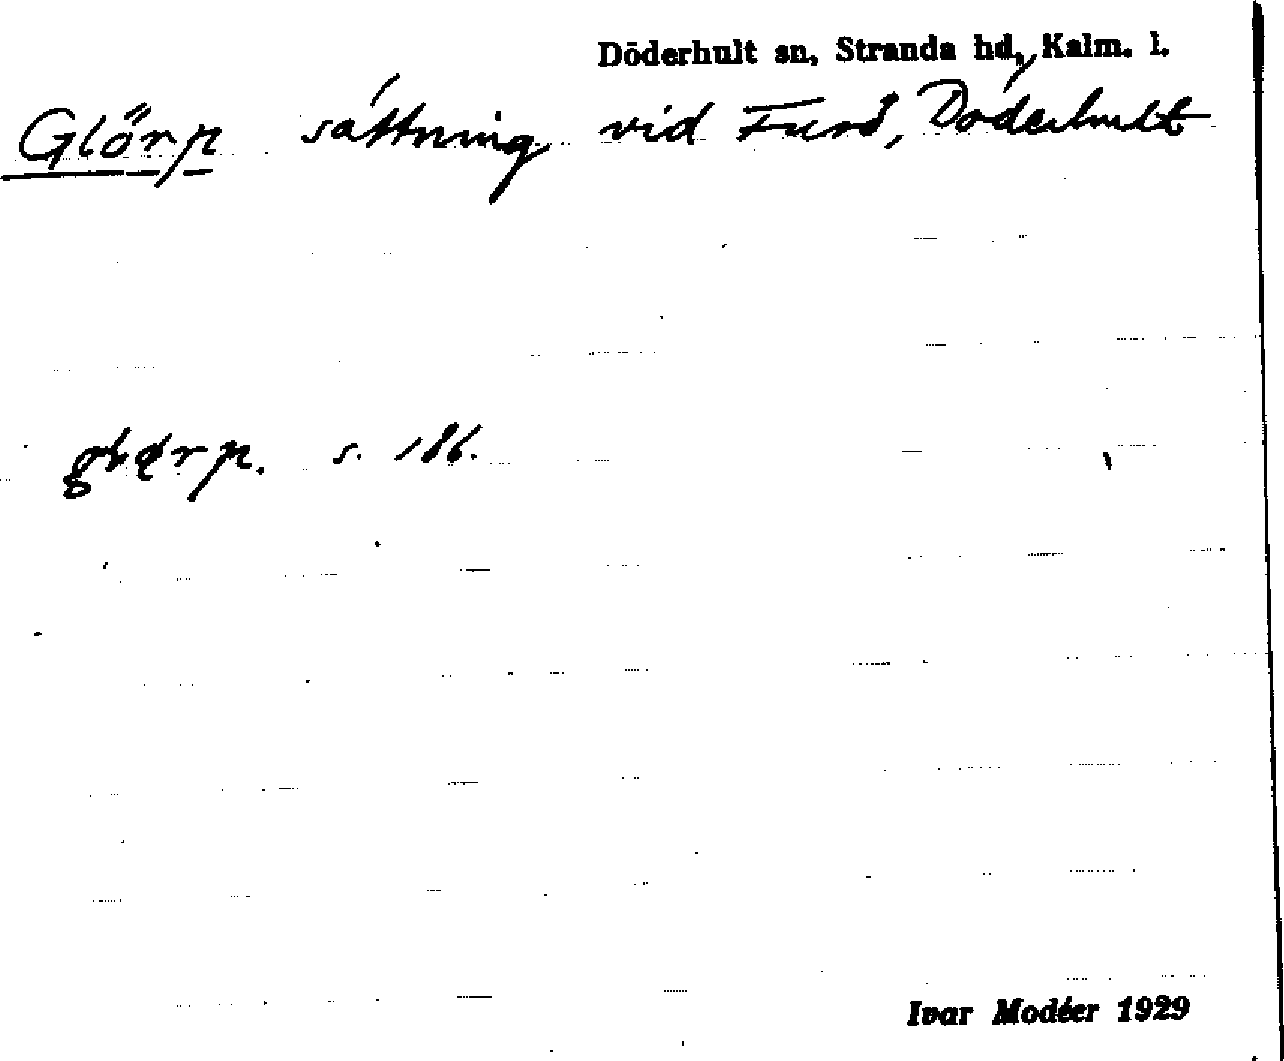 Döderhult sn, Stranda hd, Kalm. l.
Glörp sättning vid Furö, Döderhult
s. 186.
Ivar Modéer 1929